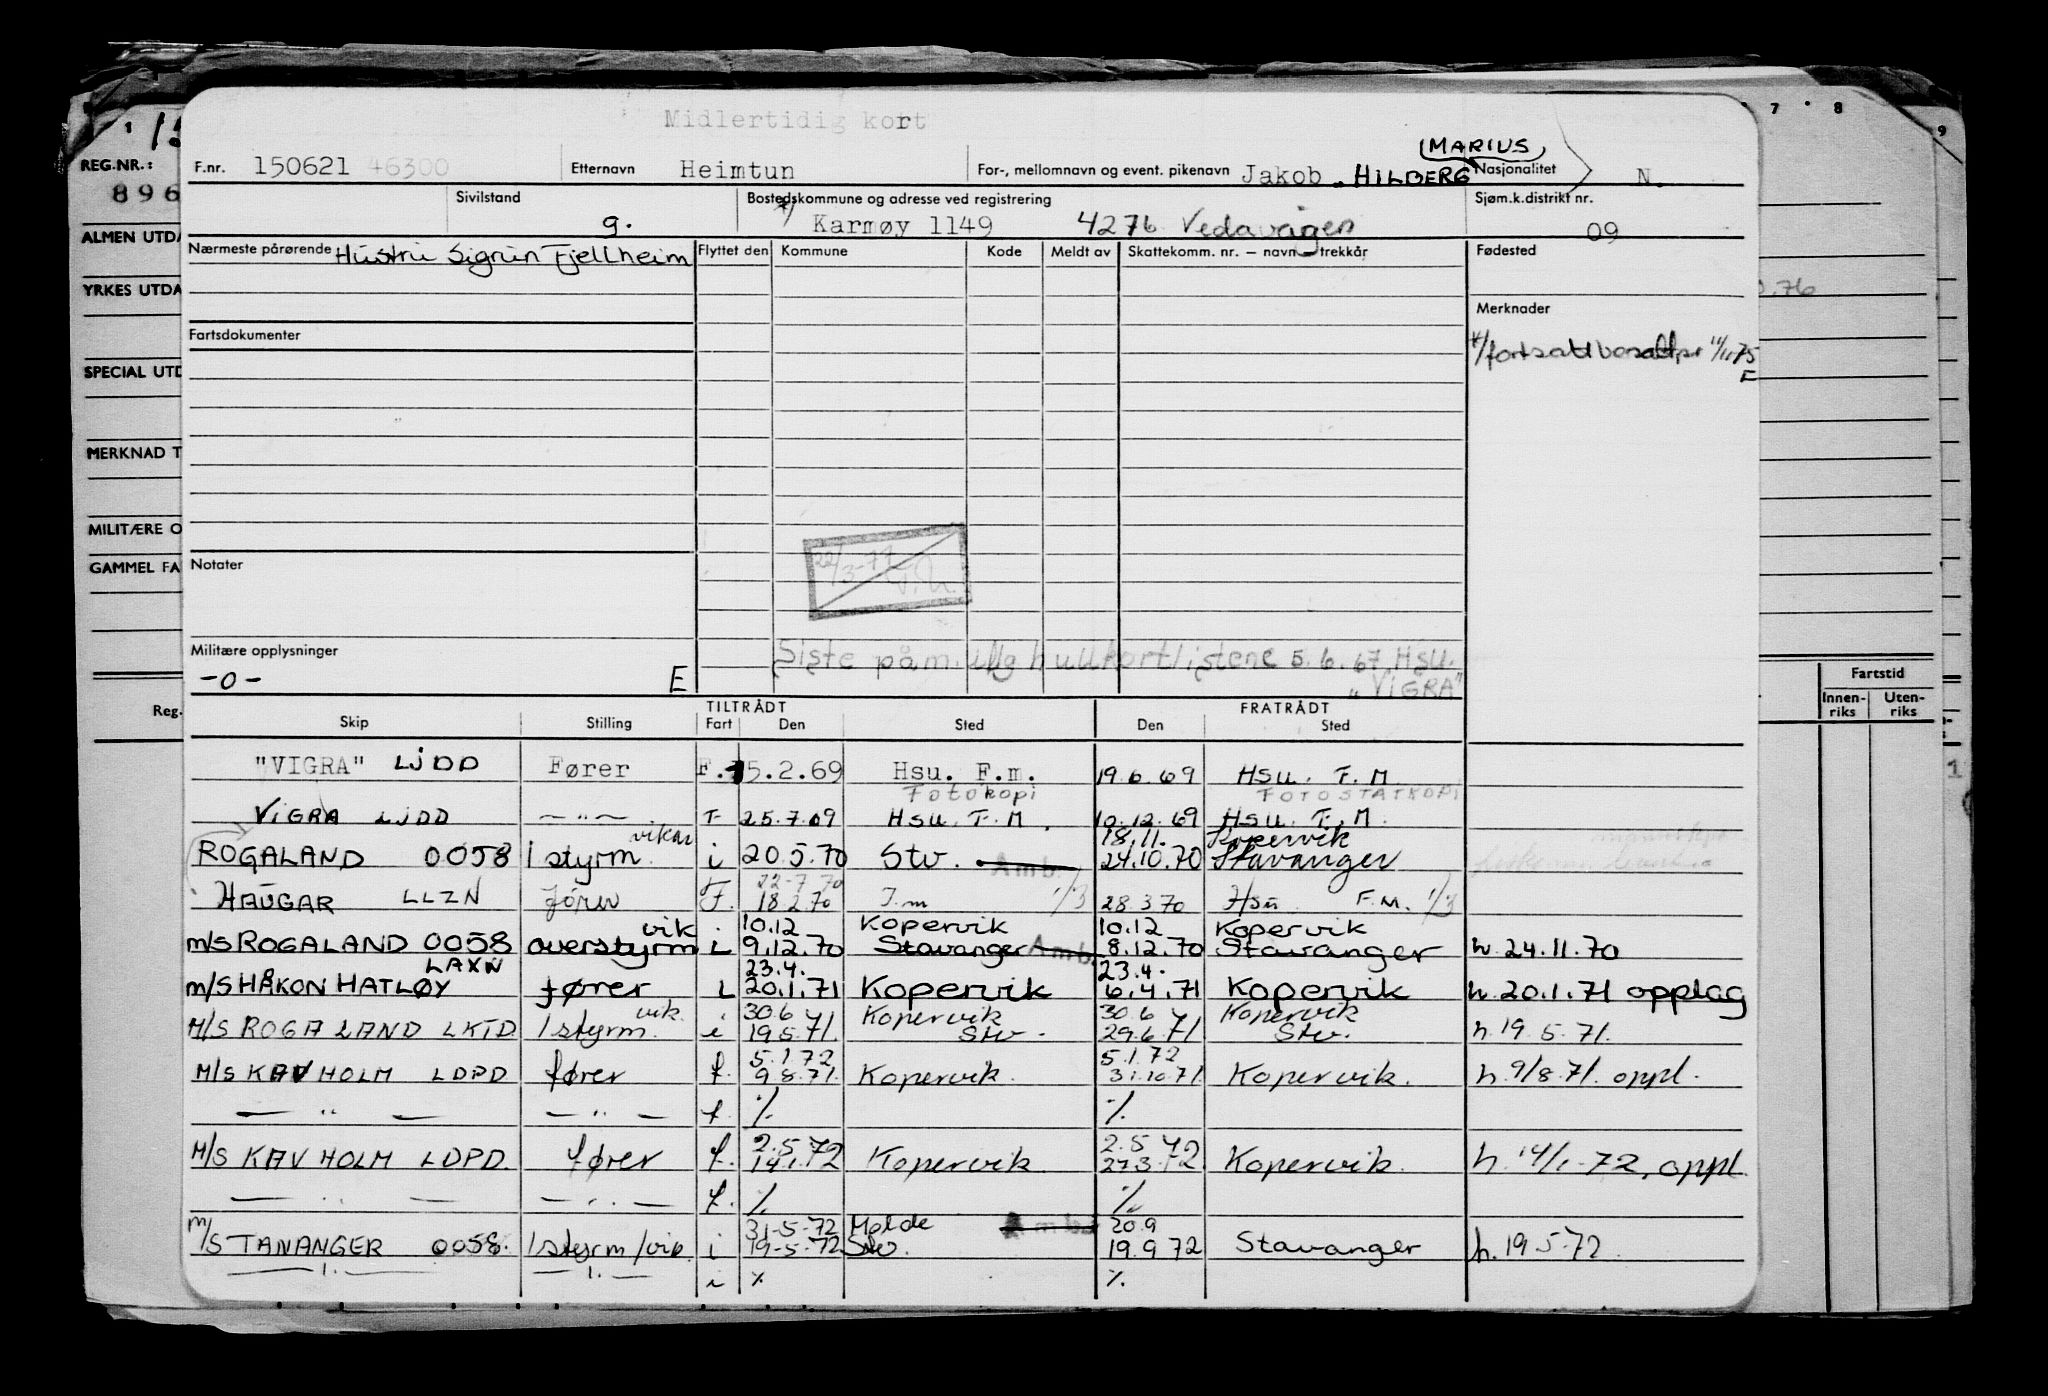 Midlertidig kort
MARIUS
F.nr. 150621 46300 Etternavn Heimtun For-, mellomnavn og event. pikenavn Jakob HILBERG Nasjonalitet N.
Sivilstand g. Bostedskommune og adresse ved registrering Karmøy 1149 4276 Vedavågen Sjøm.k.distrikt nr. 09
Nærmeste pårørende Hustru Sigrun Fjellheim Flyttet den Kommune Kode Meldt av Skattekomm. nr. — navn — trekkår Fødested
Merknader
Fartsdokumenter
*/fortsatt bosatt pr 11/11 75
E
22/3-77
Notater
Militære opplysninger
-0- E
Siste påm. ulg hullkortlistene 5.6.67 Hsu.
"VIGRA"
TILTRÅDT FRATRÅDT
Skip Stilling Fart Den Sted Den Sted
"VIGRA" LJDD Fører F. 15.2.69 Hsu. F.m. 19.6.69 HSU. F.M
Fotokopi FOTOSTATKOPI
VIGRA LJDD — " — F 25.7.69 HSU. F.M. 10.12.69 HSU. F.M.
vikar 18.11. Kopervik
ROGALAND 0058 1 styrm i 20.5.70 Stv. Amb. 24.10.70 Stavanger
22-7 70
HAUGAR LLZN fører F. 18.2.70 F.m 1/3 28.3.70 Hsu F.M. 1/3
vik 10.12 Kopervik 10.12 Kopervik
m/S ROGALAND 0058 overstyrm L 9.12.70 Stavanger Amb. 8.12.70 Stavanger h 24.11.70
LAXN 23.4. 23.4.
m/S HÅKON HATLØY fører L 20.1.71 Kopervik 6.4.71 Kopervik h. 20.1.71 opplag
vik. 30.6 Kopervik 30.6 Kopervik
M/S ROGALAND LKTD 1 styrm. i 19.5.71. Stv. 29.6.71 Stv. h. 19.5.71.
5.1.72 5.1.72
M/S KAVHOLM LDPD fører f. 9.8.71. Kopervik. 31.10.71 Kopervik. h. 9/8.71. oppl.
— " — — " — f. ٪ ٪
2.5.72 2.5.72
M/S KAVHOLM LDPD. fører f. 14.1.72 Kopervik 27.3.72 Kopervik. h. 14/1-72, oppl.
— " — — " — f. ٪ ٪
31-5-72 Molde Amb. 20.9
m/S TANANGER 0058. 1 styrm/vik i 19-5-72 Stv. 19.9 72 Stavanger h. 19.5-72.
— " — — " — i ٪ ٪
1
REG.NR.:
896
ALMEN UTDA
YRKES UTDA
SPECIAL UTD
MERKNAD T
MILITÆRE O
GAMMEL FA
Reg.
7 8
9
.76
Fartstid
Innen-riks Uten-riks
1